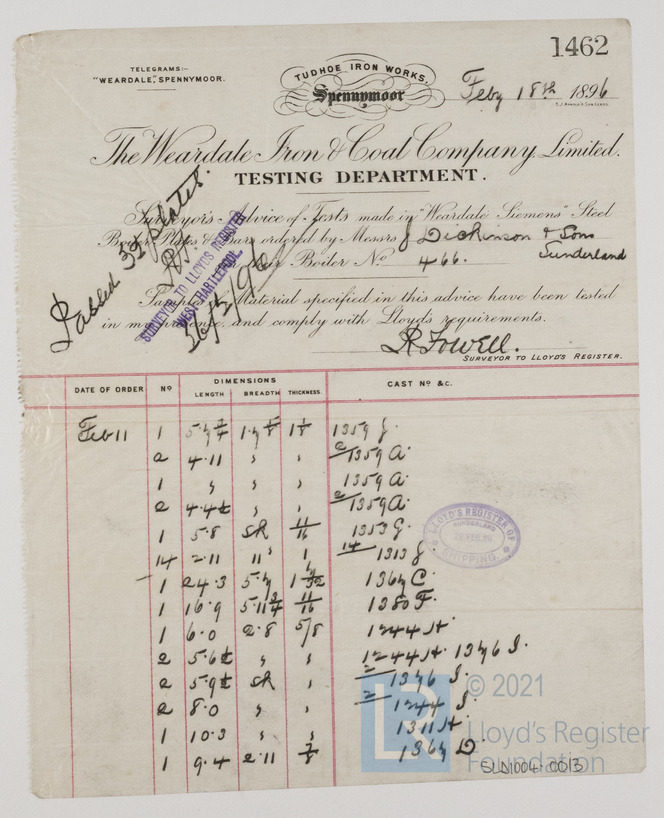 1462
TELEGRAMS:-
"WEARDALE," SPENNYMOOR.
TUDHOE IRON WORKS,
Spennymoor
Feby 18th 1896
The Weardale Iron & Coal Company, Limited.
TESTING DEPARTMENT.
Surveyor's Advice of Tests made in "Weardale Siemens" Steel
Boiler Plates & Bars ordered by Messrs J Dickinson & Sons
Sunderland
their Boiler No 466.
Samples of Material specified in this advice have been tested
in my presence, and comply with Lloyds requirements.
R Fowell.
SURVEYOR TO LLOYD'S REGISTER.
plates.
SURVEYOR TO LLOYD'S REGISTER
WEST HARTLEPOOL
26/2/96
DATE OF ORDER No DIMENSIONS CAST No &c.
LENGTH BREADTH THICKNESS
Feb 11 1 1359 J.
2 4.11 " " 2 1359 A.
1 " " " 1359 A.
2 " " 2 1359 A.
1 5.8 11/16 1353 G.
14 2.11 11" 1 14 1313 J.
1 24.3 5.7 1367 C.
1 16.9 5.11 3/4 11/16 1380 F.
1 6.0 2.8 5/8 1244 H.
2 " " 1244 H. 1376 S.
2 " 2 1376 S.
2 8.0 " " 2 1244 S.
1 10.3 " " 1311 H.
1 9.4 2.11 7/8 1367 D.
LLOYD'S REGISTER OF
SUNDERLAND
SHIPPING.
© 2021
LR
Lloyd's Register
Foundation
SLD1004-0013